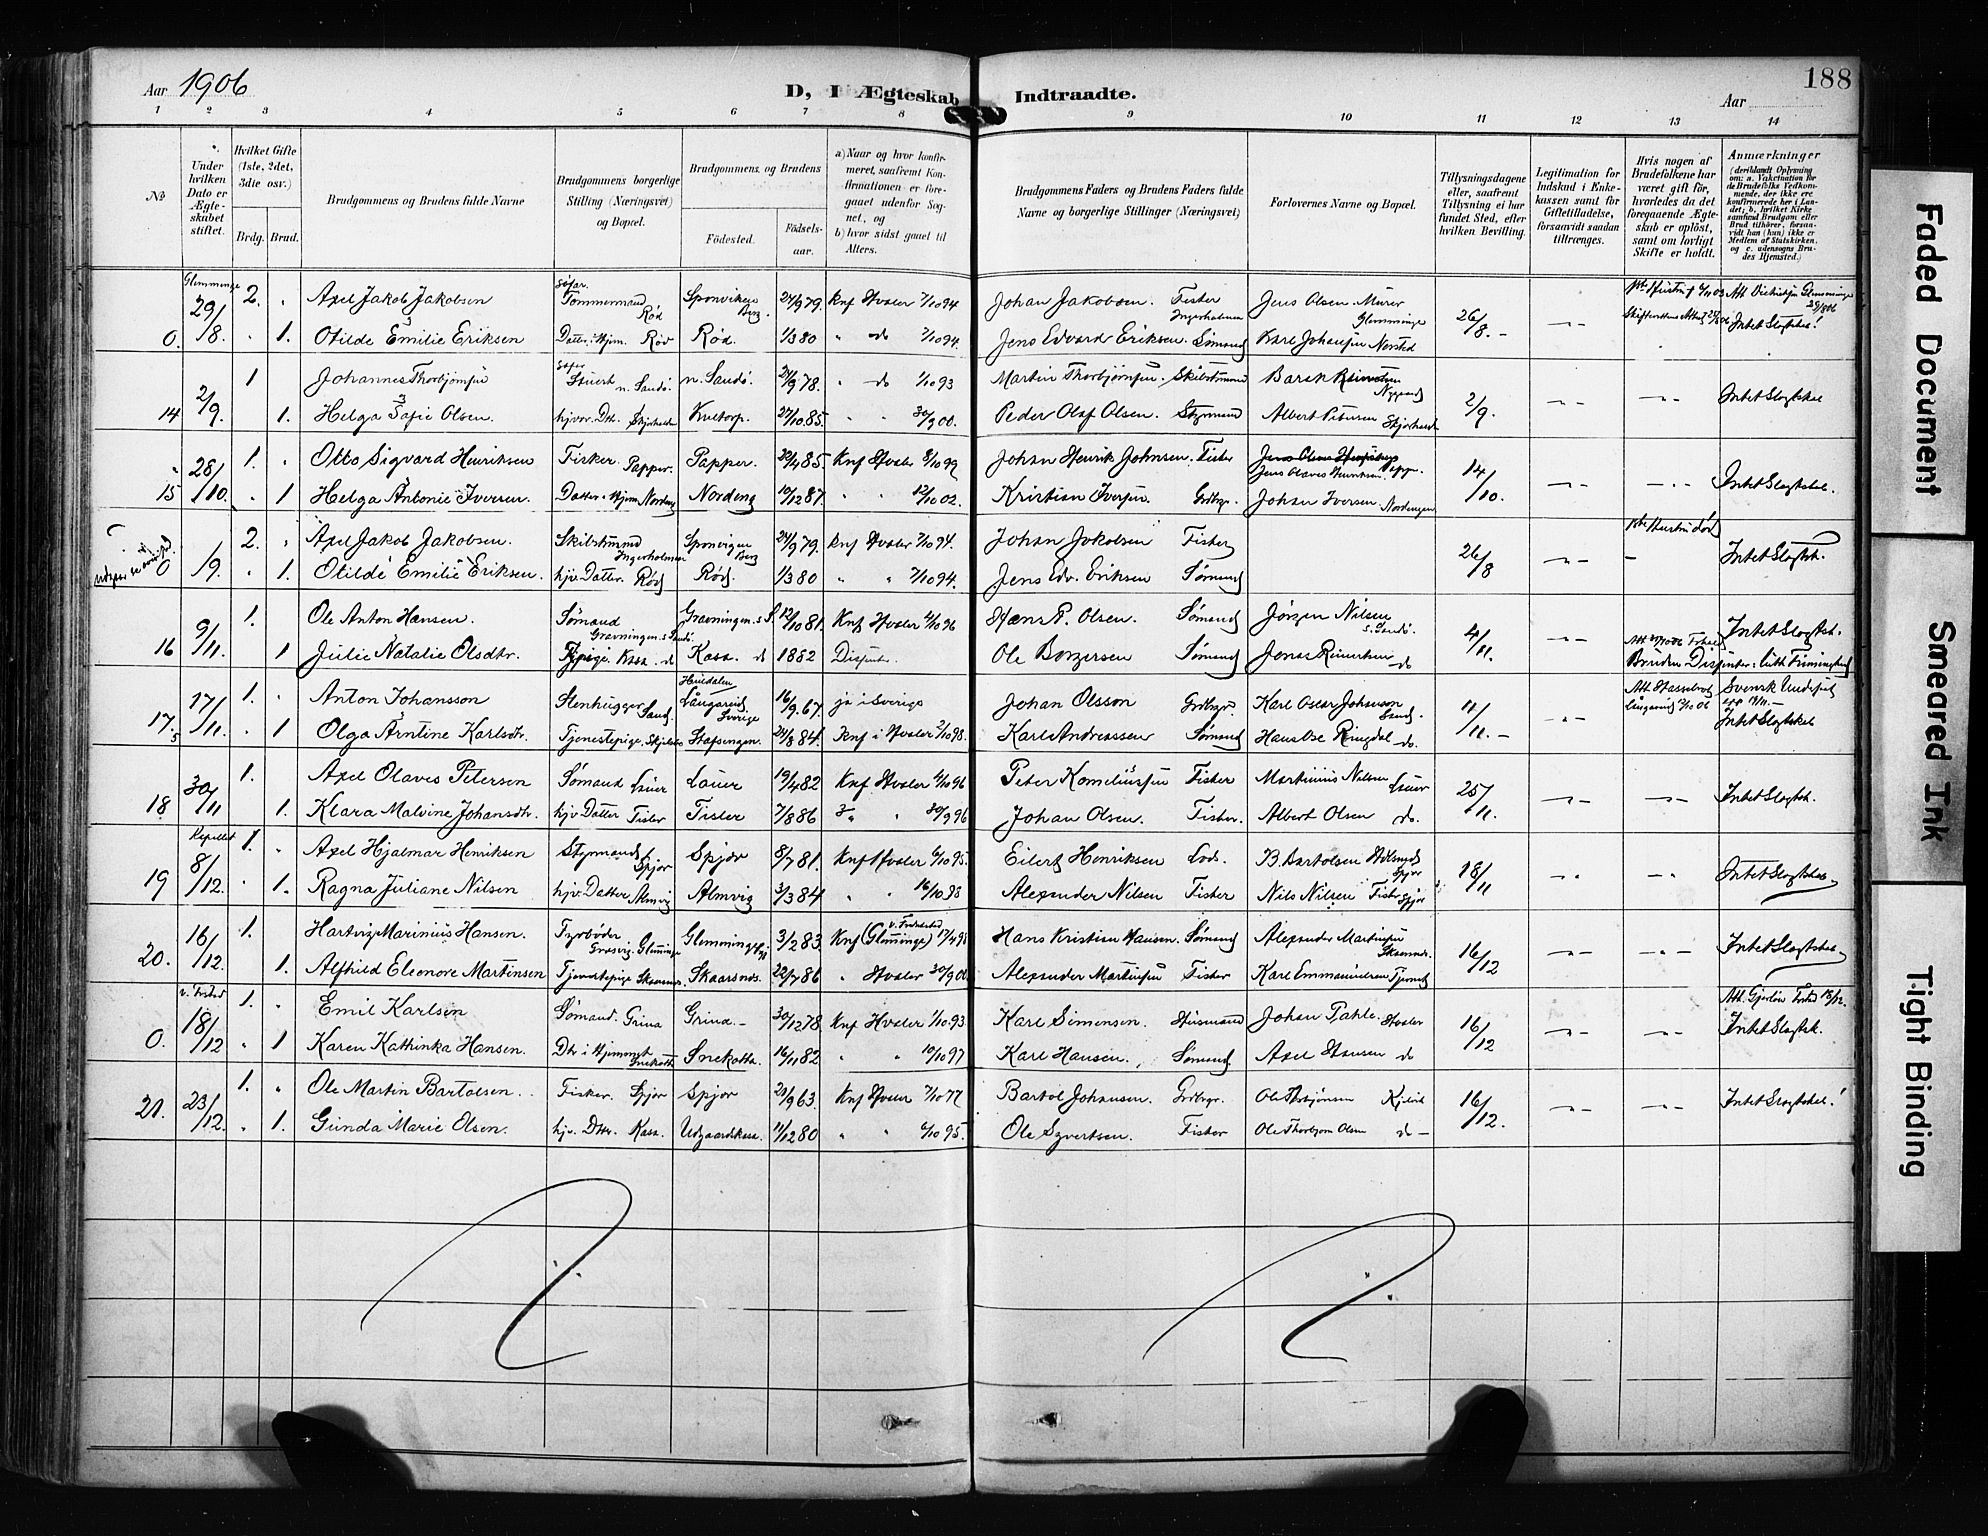 Aar 1906
D, I Ægteskab
Indtraadte.
188
Aar
1 2 3 4 5 6 7 8 9 10 11 12 13 14
No
Under hvilken Dato er Ægteskabet stiftet.
Hvilket Gifte (1ste, 2det, 3die osv.)
Brdg. Brud.
Brudgommens og Brudens fulde Navne
Brudgommens borgerlige Stilling (Næringsvei) og Bopæl.
Brudgommens og Brudens
Fødested.
Fødselsaar.
a) Naar og hvor konfirmeret, saafremt Konfirmationen er foregaaet udenfor Sognet, og
b) hvor sidst gaaet til Alters.
Brudgommens Faders og Brudens Faders fulde Navne og borgerlige Stillinger (Næringsvei)
Forlovernes Navne og Bopæl.
Tillysningsdagene eller, saafremt Tillysning ei har fundet Sted, efter hvilken Bevilling.
Legitimation for Indskud i Enkekassen samt for Giftetilladelse, forsaavidt saadan tiltrænges.
Hvis nogen af Brudefolkene har været gift før, hvorledes da det foregaaende Ægteskab er opløst, samt om lovligt Skifte er holdt.
Anmærkninger (deriblandt Oplysning om: a. Vaccination for de Brudefolks Vedkommende, der ikke ere konfirmerede her i Landet; b. hvilket Kirkesamfund Brudgom eller Brud tilhører, forsaavidt han (hun) ikke er Medlem af Statskirken, og c. udensogns Brudes Hjemsted.)
Glemminge
29/8 2. " Axel Jakob Jakobsen Tømmermand Rød Sponviken Berg. 24/9 79. Knf Hvaler 7/10 94 Johan Jakobsen. Fisker Ingerholmen Jens Olsen Murer Glemminge 26/8.-
0. " 1. Otilde Emilie Eriksen Datter i Hjem. Rød Rød. 1/3 80 " do 7/10 94. Jens Edvard Eriksen. Sømand Karl Johansen Intet Slægtskab!
2/9. 1 Johannes Thorbjørnsen n. Sandø. n. Sandø. 24/9 78. " do 1/10 93 Martin Thorbjørnsen. Skibstmand 2/9. Intet Slægtskab
14 1. Helga Sofie Olsen. hjvær. Dtr. Skjærhalden 27/10 85. " " 30/9 00. Peder Olaf Olsen. Styrmand Albert Petersen Skjærhald
28/10. 1. " Otto Sigvard Henriksen Fisker. Papper. Papper. 22/4 85. Knf Hvaler 8/10 99 Johan Henrik Johnsen. Fisker Jens Olaves Henriksen Papp. 14/10. Intet Slægtskab.
15 " 1 Helga Antonie Iversen. Datter i Hjem Nordeng Nordeng 19/12 87. " " 12/10 02. Kristian Iversen. Grdbgr. Johan Iversen Nordengen
2. " Axel Jakob Jakobsen. Skibstmand Ingerholmen Sponvigen Berg 24/9 79. Knf Hvaler 7/10 94. Johan Jakobsen Fisker 26/8 Intet Slægtsk.
0 /9. " 1. Otilde Emilie Eriksen. hjv. Datter. Rød Rød. 1/3 80 " " 7/10 94. Jens Edv. Eriksen Sømand
9/11. 1. Ole Anton Hansen. Sømand Gravningen. s Sandø. Gravningen. s S. 12/10 81. Knf Hvaler 4/10 96 Hans P. Olsen. Sømand Jørgen Nilsen s. Sandø. 4/11. Intet Slægtsk.
16 1 Julie Natalie Olsdtr. Kasa. do Kasa. do 1882 Dissenter. Ole Borgersen Sømand Jonas Reinertsen do Bruden Dissenter: luth Frimenighed
17/11. 1. " Anton Johansson Stenhugger Sand. Långarud, Sverige 16/9. 67. ja i Sverige Johan Olsson Grdbgr. Karl Oscar Johansson Sand. 11/11.- Svensk Undersåt
17. " 1 Olga Arntine Karlsdtr. Tjenestepige. Stafsengen. 24/8 84. Knf i Hvaler 2/10 98. Karl Andreassen Sømand Hans Ose Ringdal do. Intet Slægtskab
30/11 1. Axel Olaves Petersen Sømand Lauer Lauer 19/4 82 Knf Hvaler 4/10 96 Peter Korneliussen Fisker Martinius Nilsen Lauer 25/11. Intet Slægtsk.
18 1. Klara Malvine Johansdtr. hjv Datter Tisler Tisler 7/8 86 30/9 96 Johan Olsen. Fisker. Albert Olsen do.
Kapellet
8/12. 1. " Axel Hjalmar Henriksen Styrmand Spjær Spjær 8/7 81. Knf Hvaler 6/10 95. Eilert Henriksen Lods. B. Bartolsen Spjær 18/11 Intet Slægtskab
19 " 1. Ragna Juliane Nilsen hjv. Datter Almvig Almvig 3/3 84 " " 16/10 98 Alexander Nilsen Fisker Nils Nilsen Fisker Spjær
16/12. 1. Hartvig Marinius Hansen. Fyrbøder Gresvig. Glemminge Glemminge 3/2 83. Knf (Glemminge) v. Fredrikstad 17/4 98 Hans Kristian Hansen. Sømand Alexander Martinsen Skaarsnes. 16/12 Intet Slægtskab
20. 1. Alfhild Eleonore Martinsen Tjenestepige Skaarsnes. Skaarsnes. 22/7 86 " Hvaler 30/9 00. Alexander Martinsen Fisker Karl Emmanuelsen
18/12 1. " Emil Karlsen Sømand. Grina Grina.- 30/12 78 Knf Hvaler 1/10 93. Karl Simensen. Husmand Johan Pahle. Hvaler 16/12 Intet Slægtsk.
0. " 1 Karen Kathinka Hansen. Dtr i Hjemmet Snekotta Snekotta. 16/11 82 " " 10/10 97 Karl Hansen. Sømand. Axel Hansen do
23/12. 1. " Ole Martin Bartolsen. Fisker. Spjær Spjær 21/9 63. Knf Hvaler 7/10 77 Bartol Johansen. Grdbgr. Ole Thorbjørnsen 16/12. Intet Slægtskab!
21. " 1. Gunda Marie Olsen. hjv. Dttr. Kasa. Udgaardskasa. 11/12 80 " " 6/10 95. Ole Syvertsen. Fisker Ole Thorbjørn Olsen do -
Faded Document
Smeared Ink
Tight Binding